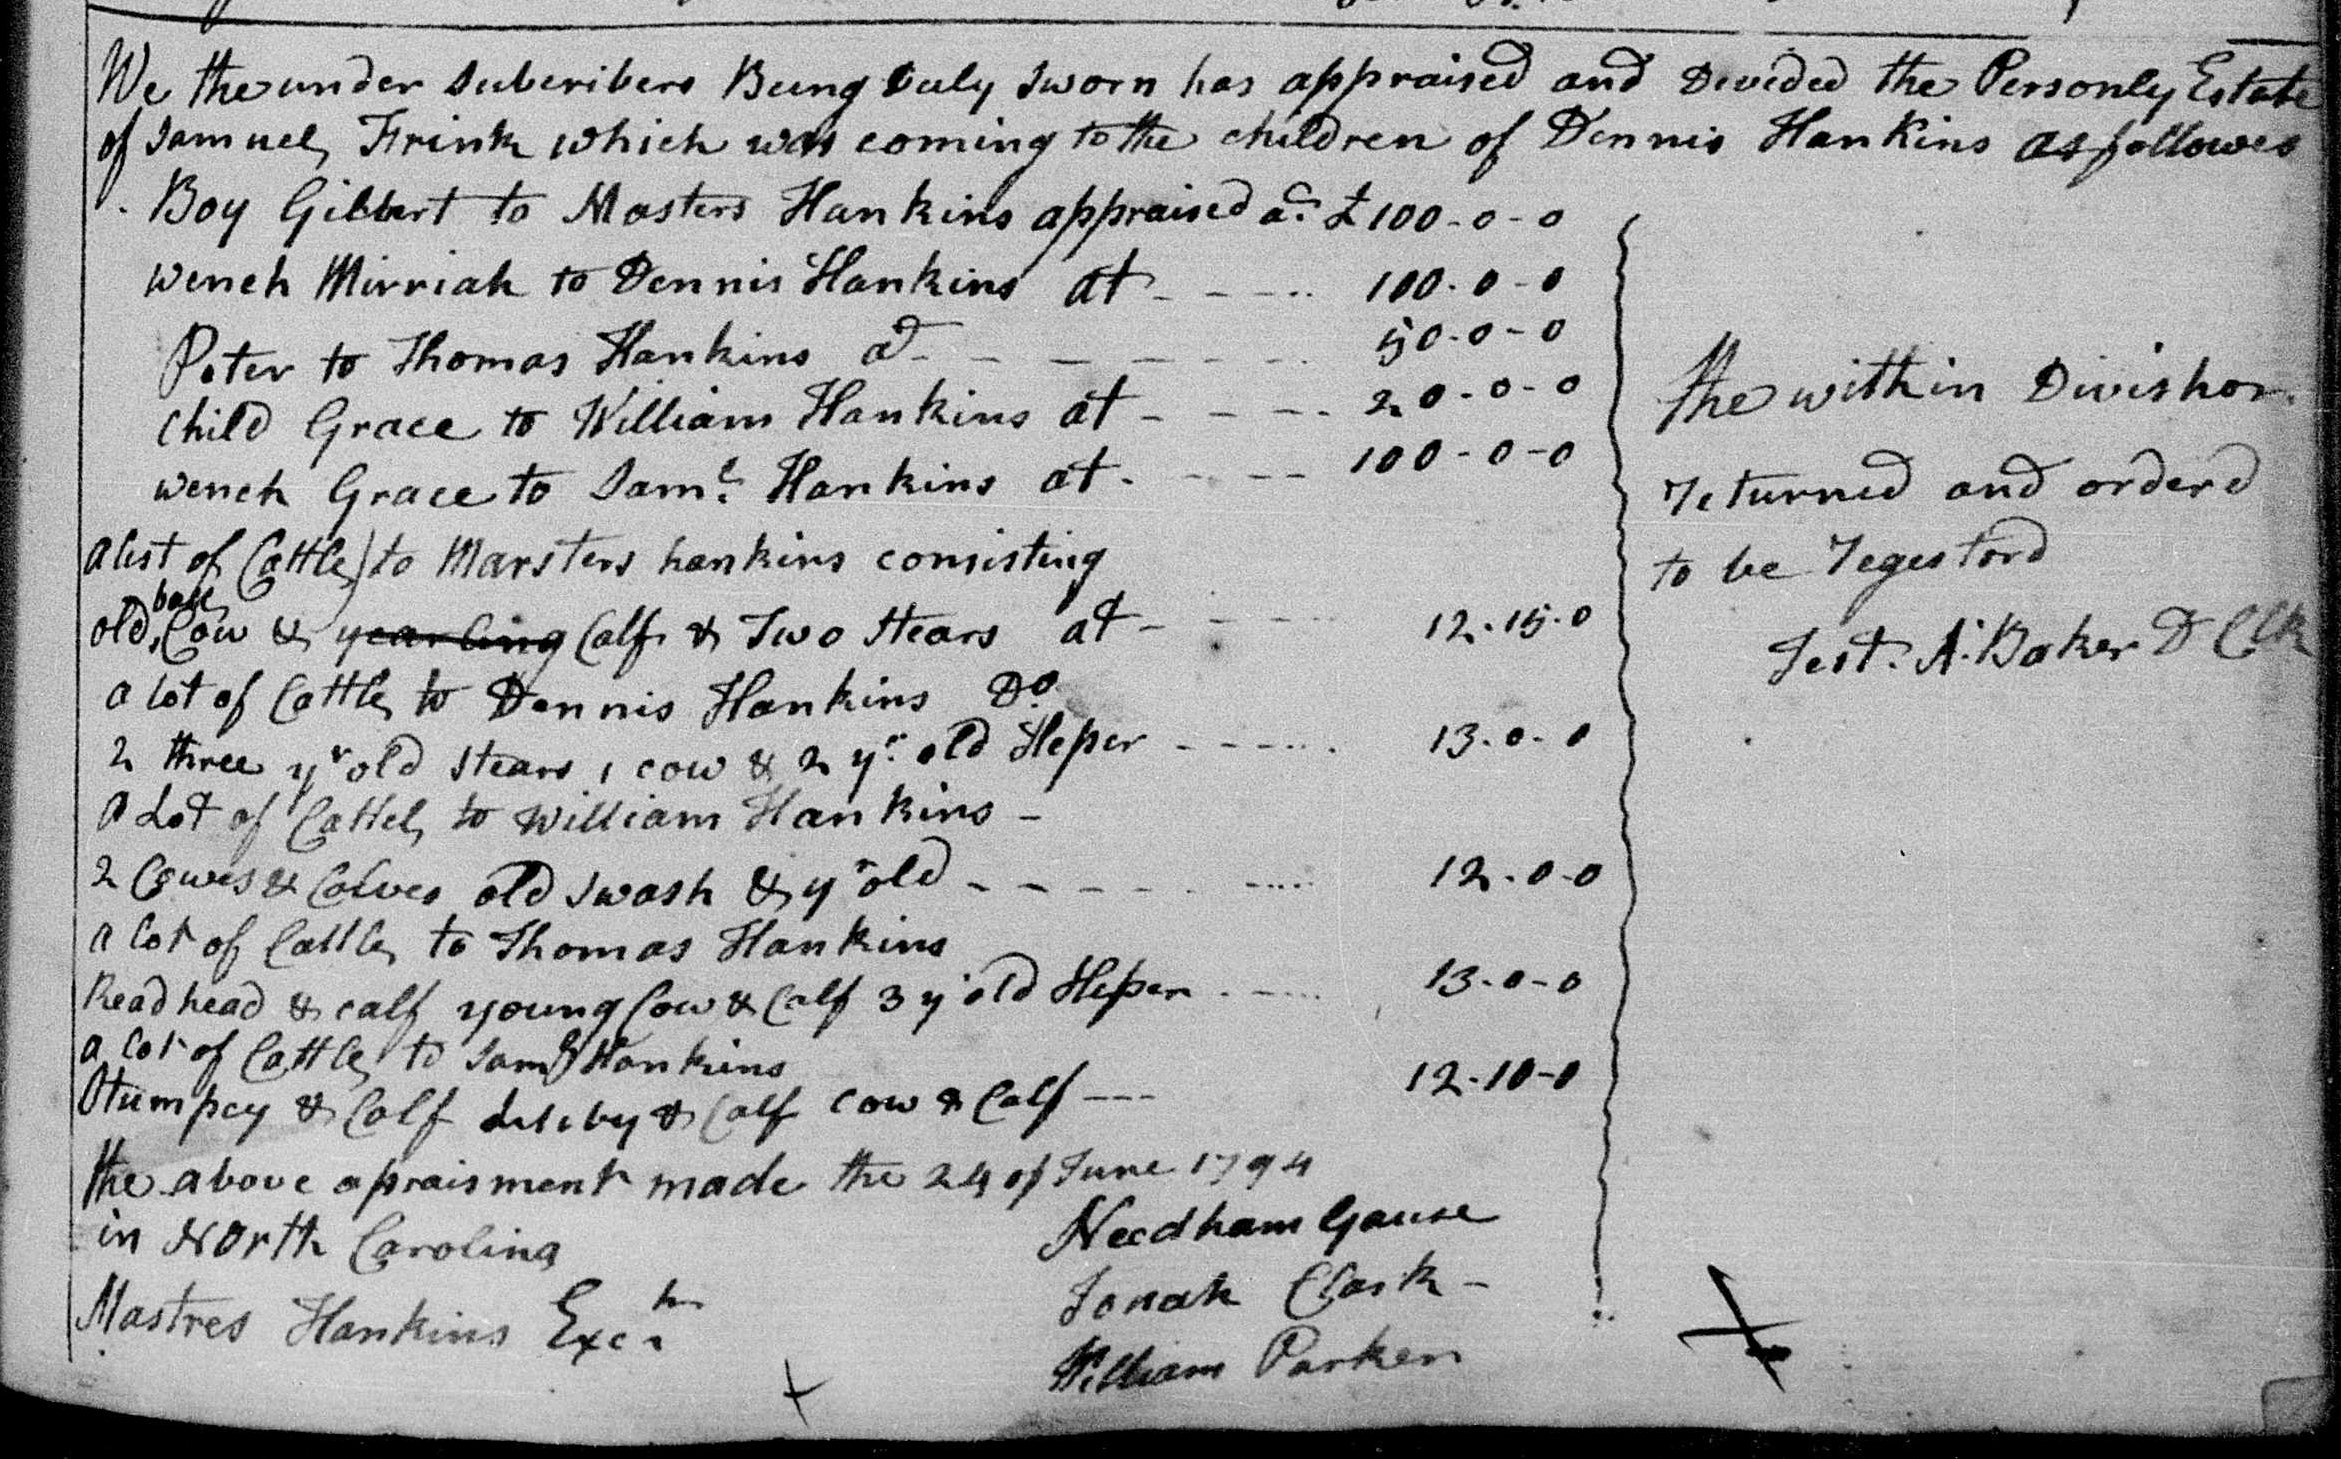 We the under Suberibers Being Duly Sworn has appraised and Devided the Personly Estate
of Samuel Frink which was coming to the children of Dennis Hankins as followes
Boy Gilbert to Masters Hankins appraised at £100-0-0
wench Mirriah to Dennis Hankins at - - - - 100-0-0
Peter to Thomas Hankins at - - - - - - 50-0-0
Child Grace to William Hankins at - - - - 20-0-0
wench Grace to Saml. Hankins at - - - - 100-0-0
a list of Cattle) to Marsters hankins consisting
ball
old, Cow & yearling Calf & Two Stears at - - - - 12-15-0
a lot of Cattle to Dennis Hankins Do.
2 three yr old Stears 1 cow & 2 yr. old Hefer - - - - 13-0-0
A Lot of Cattel to William Hankins -
2 Cowes & Calves old Swash & yr old - - - - - - 12-0-0
a lot of Cattle to Thomas Hankins
Read head & calf young Cow & Calf 3 yr old Hefer - - - - 13-0-0
a lot of Cattle to Saml Hankins
Stumpey & Calf & Calf cow & Calf --- 12-10-0
the above apraisment made the 24 of June 1794
in North Carolina
Needham Gause
Jonah Clark -
Mastres Hankins Excr
William Parker
the within Divishon
returned and orderd
to be Regestord
Test. A. Baker D Clk